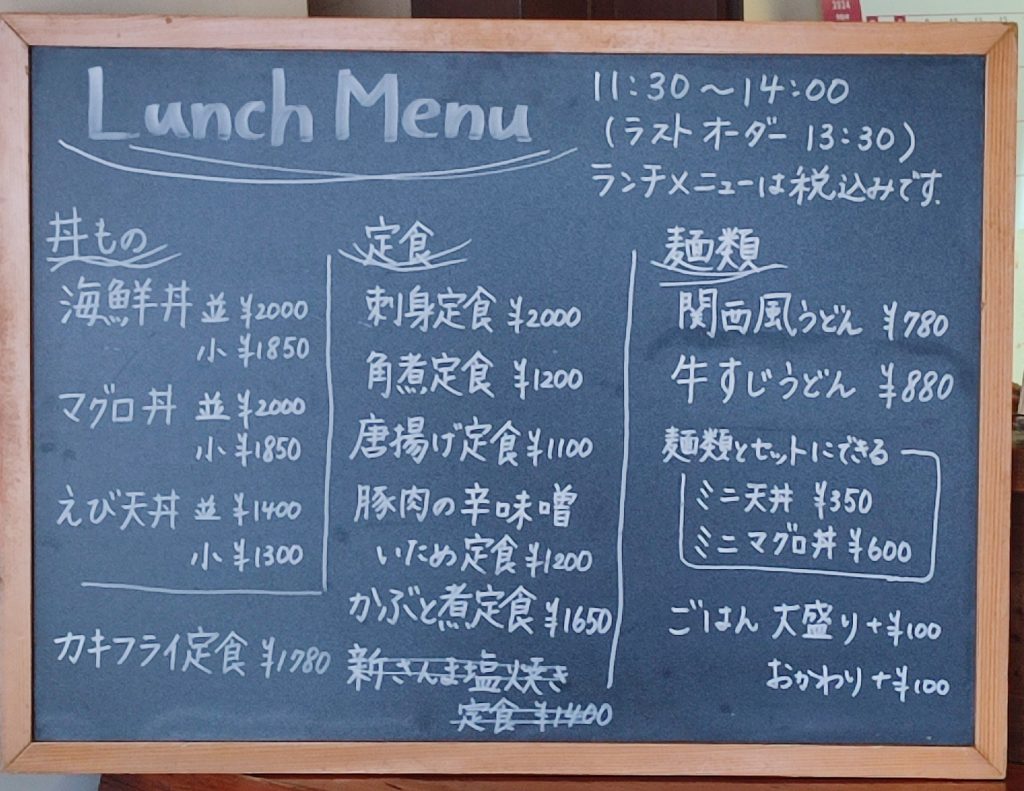 Lunch Menu
11:30〜14:00
(ラストオーダー 13:30)
ランチメニューは税込みです.
丼もの
海鮮丼 並 ¥2000
小 ¥1850
マグロ丼 並 ¥2000
小 ¥1850
えび天丼 並 ¥1400
小 ¥1300
カキフライ定食 ¥1780
定食
刺身定食 ¥2000
角煮定食 ¥1200
唐揚げ定食 ¥1100
豚肉の辛味噌
いため定食 ¥1200
かぶと煮定食 ¥1650
新さんま塩焼き
定食 ¥1400
麺類
関西風うどん ¥780
牛すじうどん ¥880
麺類とセットにできる
ミニ天丼 ¥350
ミニマグロ丼 ¥600
ごはん 大盛り+¥100
おかわり+¥100
2024